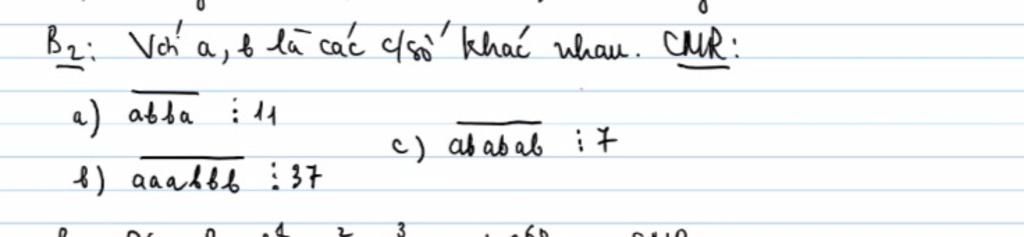 B2: Với a, b là các c/số khác nhau. CMR:
a) abba ⋮ 11
c) ababab ⋮ 7
b) aaabbb ⋮ 37